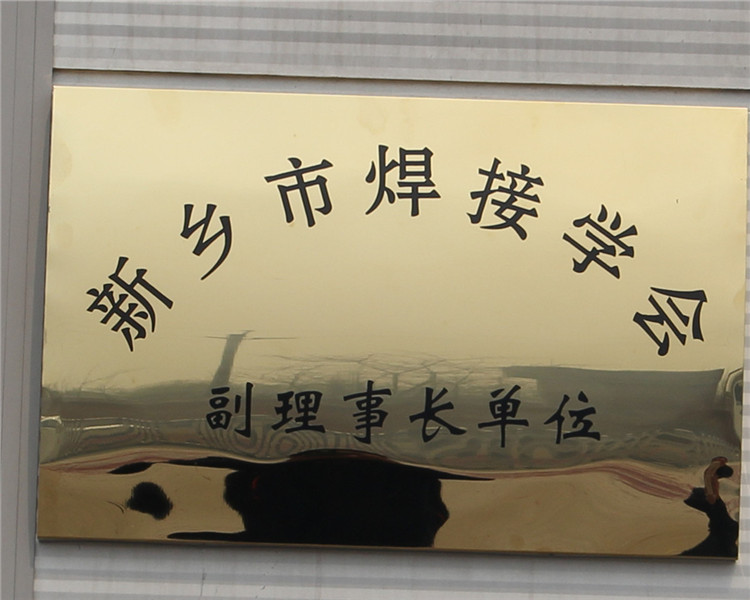 新乡市焊接学会
副理事长单位